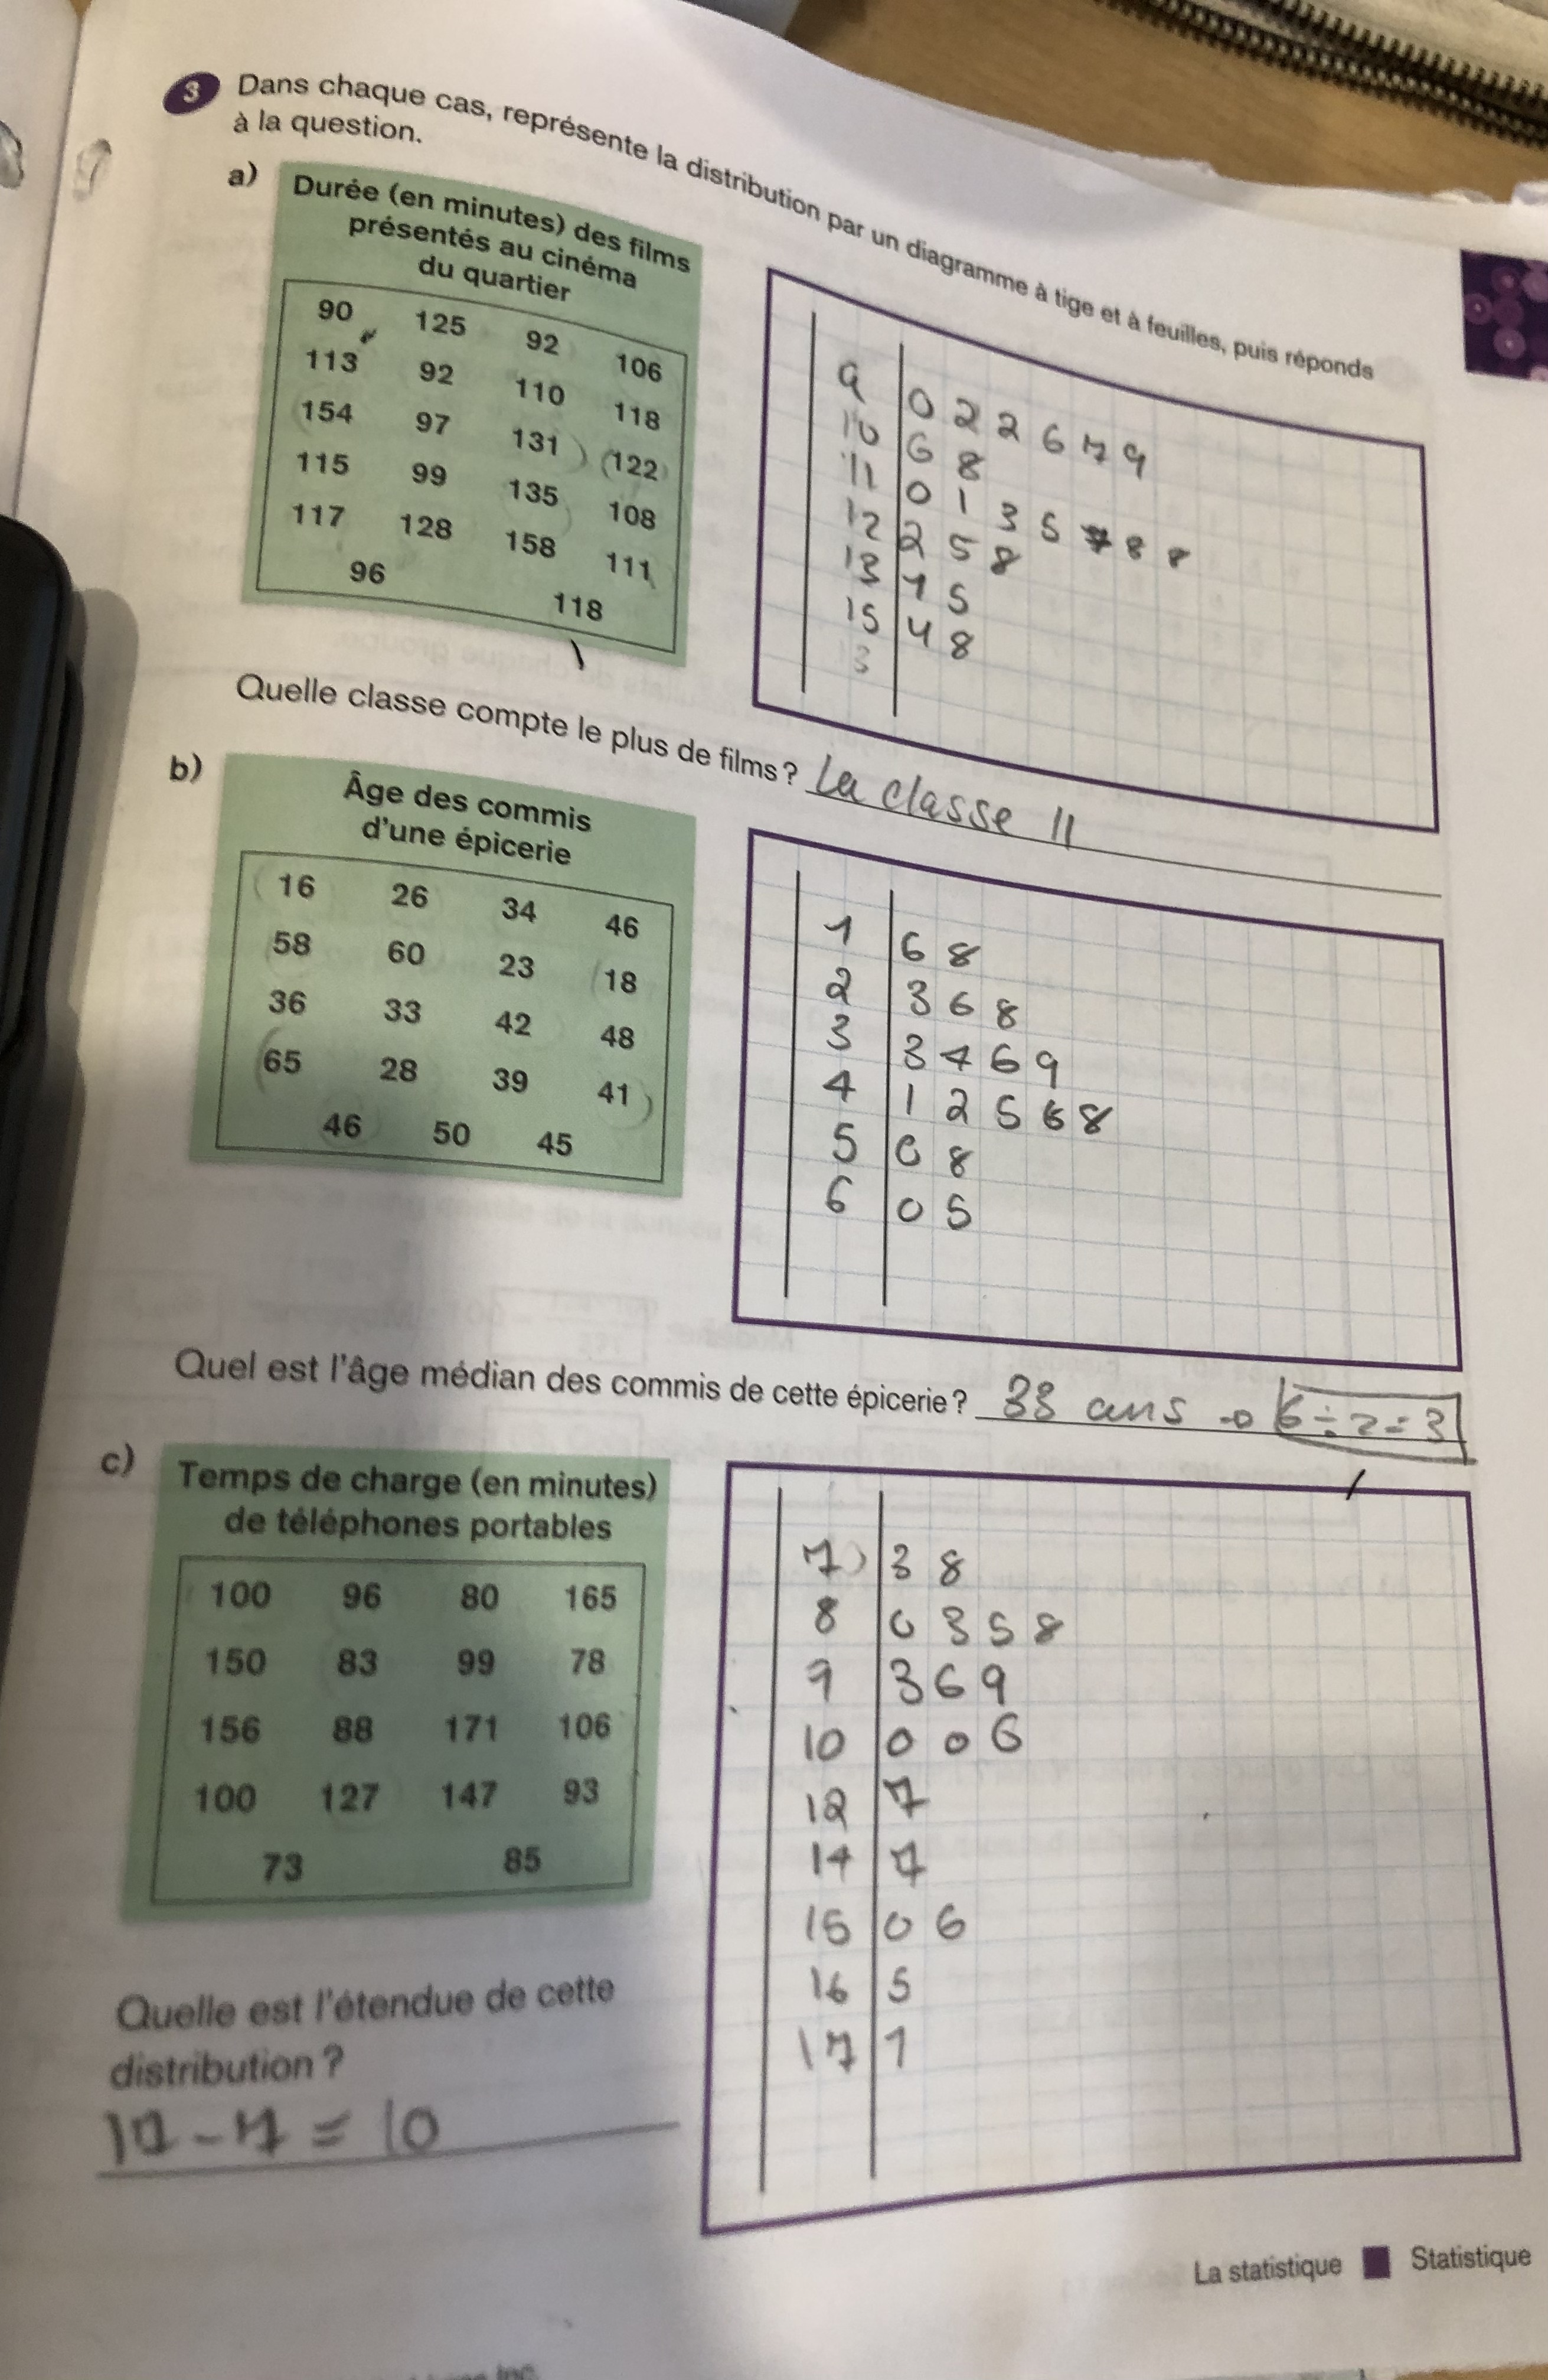 3 Dans chaque cas, représente la distribution par un diagramme à tige et à feuilles, puis réponds
à la question.
a) Durée (en minutes) des films
présentés au cinéma
du quartier
90 125 92 106
113 92 110 118
154 97 131 122
115 99 135 108
117 128 158 111
96 118
9 0 2 2 6 7 9
10 6 8
11 0 1 3 5 7 8 8
12 2 5 8
13 1 5
15 4 8
13
Quelle classe compte le plus de films? La classe 11
b) Âge des commis
d'une épicerie
16 26 34 46
58 60 23 18
36 33 42 48
65 28 39 41
46 50 45
1 6 8
2 3 6 8
3 3 4 6 9
4 1 2 5 6 8
5 0 8
6 0 5
Quel est l'âge médian des commis de cette épicerie? 33 ans → 6 ÷ 2 = 3
c) Temps de charge (en minutes)
de téléphones portables
100 96 80 165
150 83 99 78
156 88 171 106
100 127 147 93
73 85
7 3 8
8 0 3 5 8
9 3 6 9
10 0 0 6
12 7
14 7
15 0 6
16 5
17 1
Quelle est l'étendue de cette
distribution?
17 - 7 = 10
La statistique Statistique